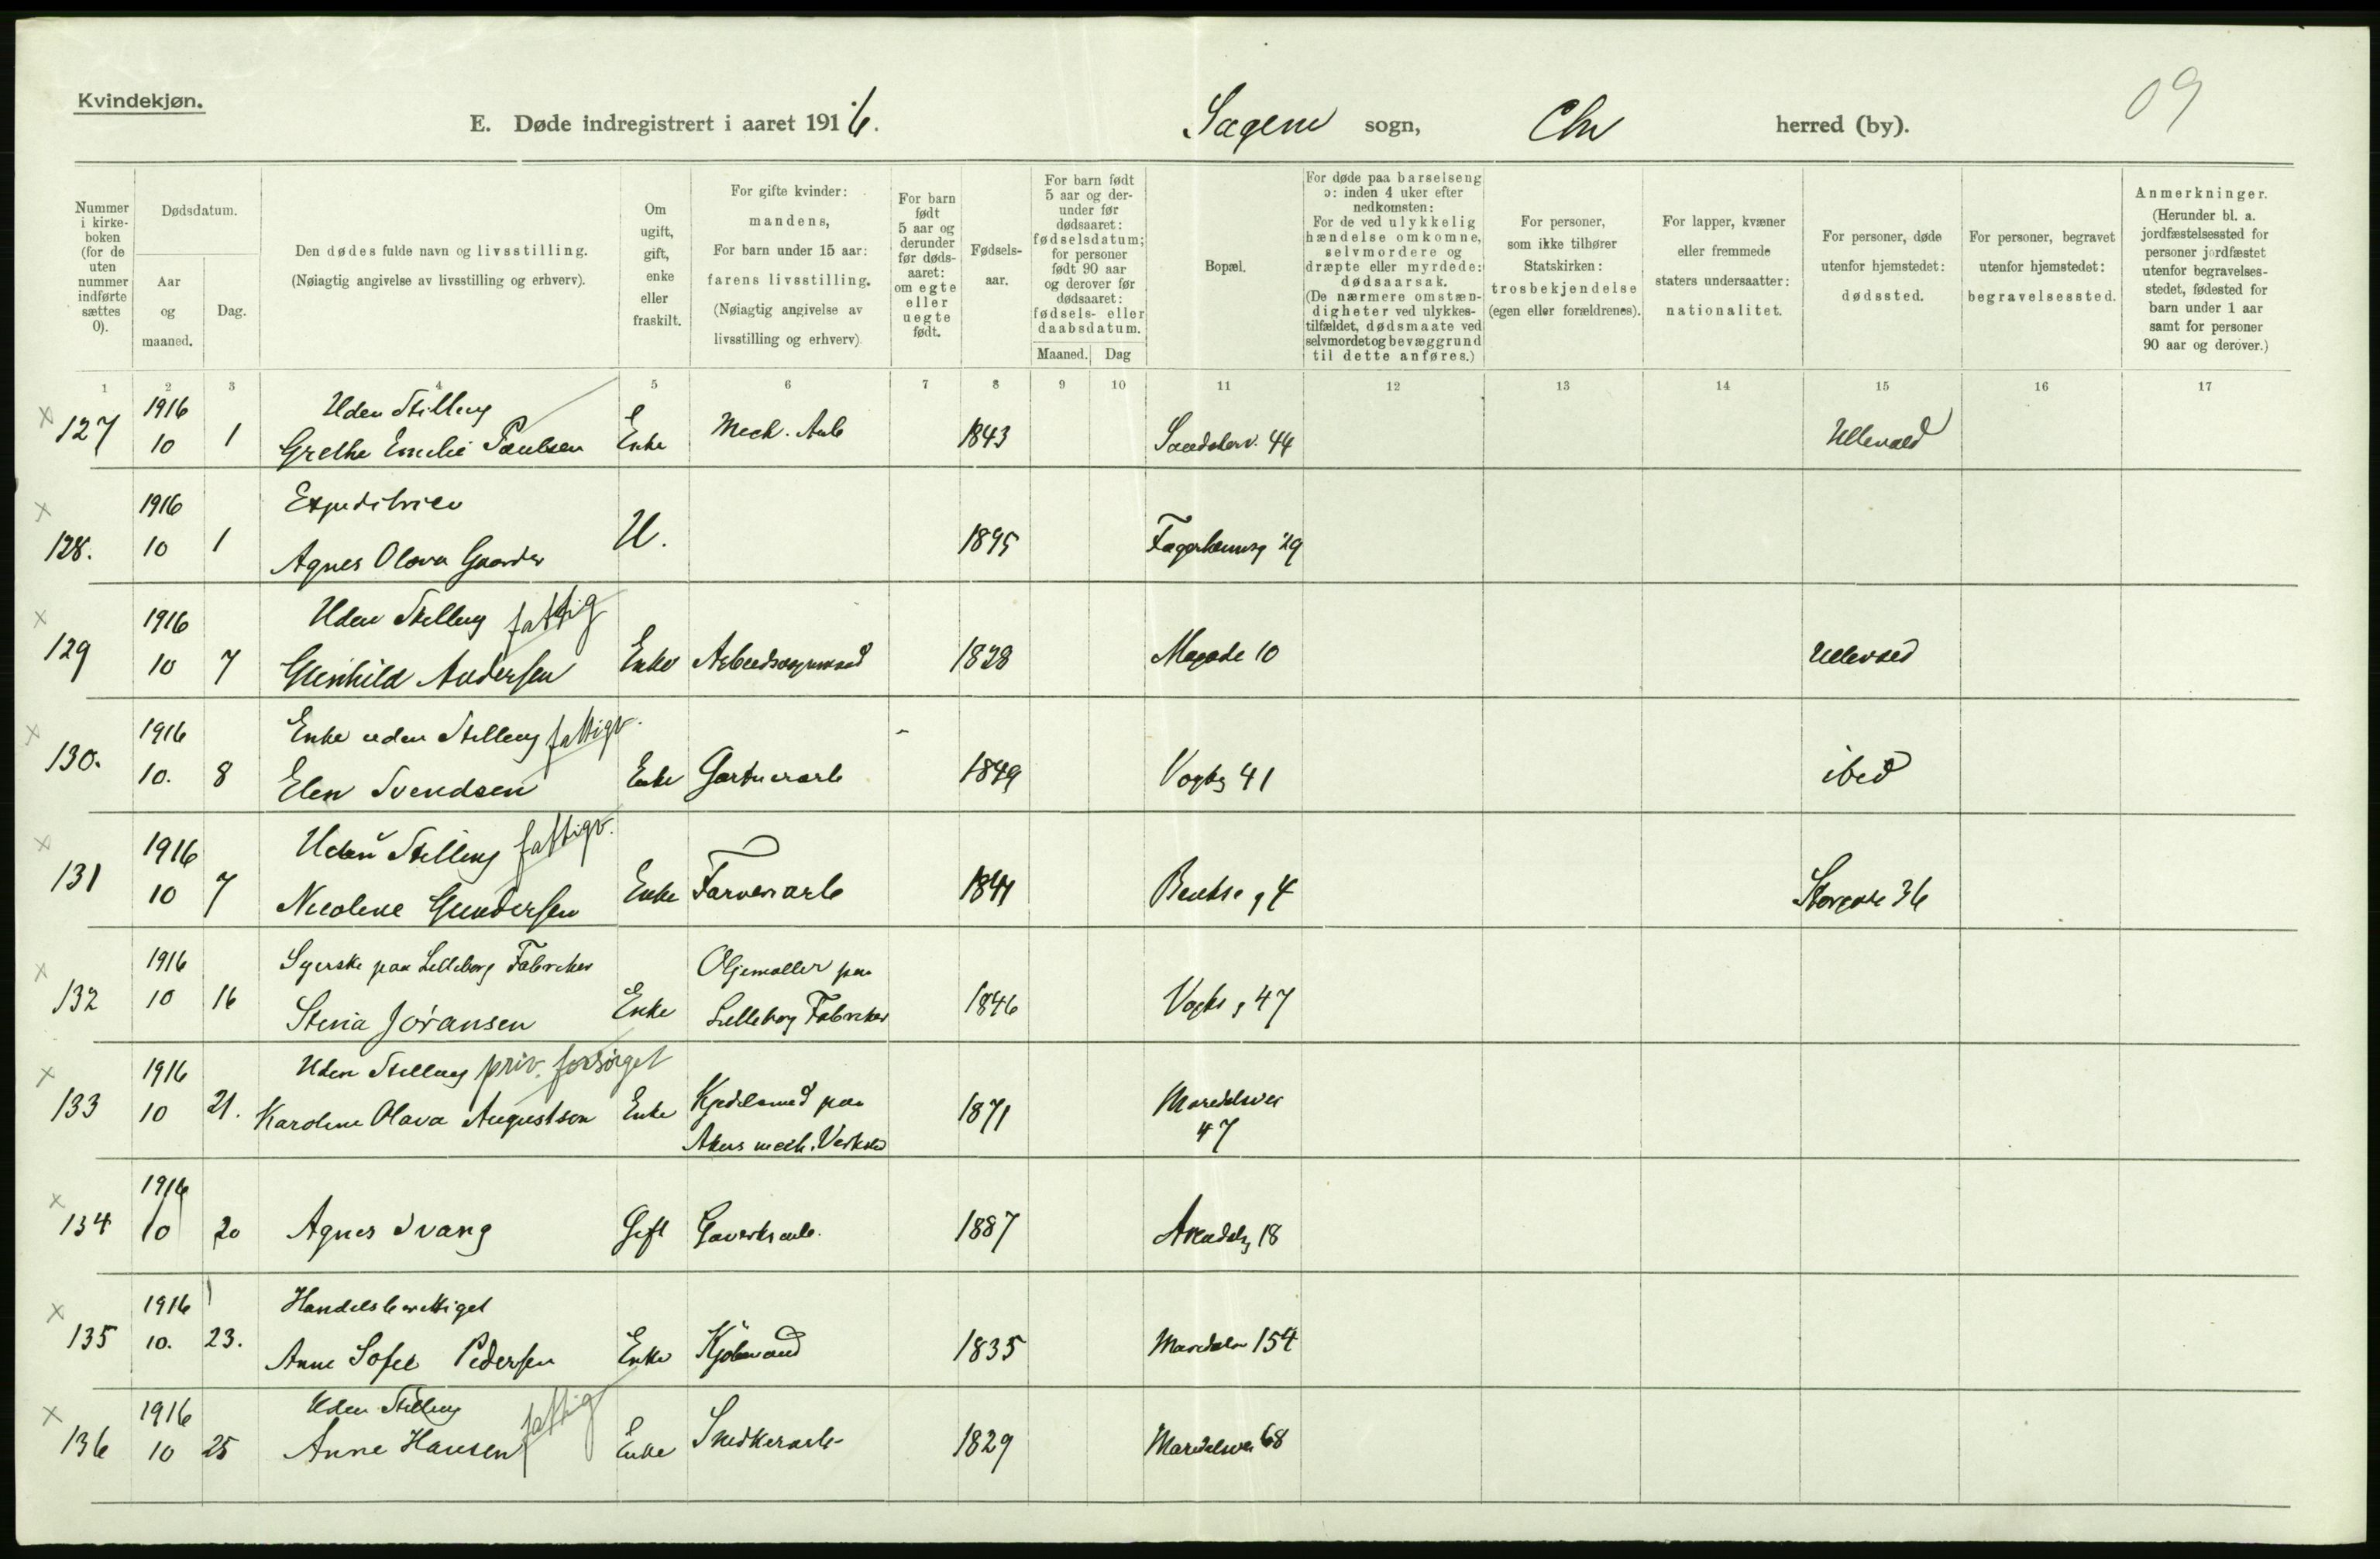 Kvindekjøn.
E. Døde indregistrert i aaret 1916.
Sagene sogn, Chr herred (by).
09
Nummer i kirkeboken (for de uten nummer indførte sættes 0).
Dødsdatum.
Aar og maaned.
Dag.
Den dødes fulde navn og livsstilling.
(Nøiagtig angivelse av livsstilling og erhverv).
Om ugift, gift, enke eller fraskilt.
For gifte kvinder: mandens,
For barn under 15 aar: farens livsstilling.
(Nøiagtig angivelse av livsstilling og erhverv)
For barn født 5 aar og derunder før dødsaaret: om egte eller uegte født.
Fødselsaar.
For barn født 5 aar og derunder før dødsaaret: fødselsdatum; for personer født 90 aar og derover før dødsaaret: fødsels- eller daabsdatum.
Maaned. Dag
Bopæl.
For døde paa barselseng ɔ: inden 4 uker efter nedkomsten:
For de ved ulykkelig hændelse omkomne, selvmordere og dræpte eller myrdede: dødsaarsak.
(De nærmere omstændigheter ved ulykkestilfældet, dødsmaate ved selvmordet og bevæggrund til dette anføres.)
For personer, som ikke tilhører Statskirken: trosbekjendelse (egen eller forældrenes).
For lapper, kvæner eller fremmede staters undersaatter: nationalitet.
For personer, døde utenfor hjemstedet: dødssted.
For personer, begravet utenfor hjemstedet: begravelsessted.
Anmerkninger.
(Herunder bl. a. jordfæstelsessted for personer jordfæstet utenfor begravelsesstedet, fødested for barn under 1 aar samt for personer 90 aar og derover.)
1 2 3 4 5 6 7 8 9 10 11 12 13 14 15 16 17
1916 Uden Stilling
127 10 1 Grethe Emelie Paulsen Enke Mech. Arb 1843 44 Ullevaal
1916 Expeditrice
128. 10 1 Agnes Olava Gaarder U. 1895 29
1916 Uden Stilling fattig
129 10 7 Gunhild Andersen Enke 1828 10 Ullevaal
1916 Enke uden Stilling fattigv.
130. 10. 8 Elen Svendsen Enke Gartnerarb 1849 Vogtsg 41 ibid
1916 Uden Stilling fattigv.
131 10 7 Nicoline Gundersen Enke Farveriarb Bentse g 4 Storgate 36
1916 Syerske paa Lilleborg Fabriker Oljemøller paa
132 10 16 Stina Joransen Enke Lilleborg Fabriker 1846 Vogts g 47
1916 Uden Stilling priv. forsørget
133 10 21. Karoline Olava Augustson Enke Kjedelsmed paa Akers mech. Verksted 1871 Maridalsvei 47
1916
134 10 20 Agnes Svang Gift Gaverksarb. 1887 Arendalsg 18
1916 Handelsberettiget
135 10. 23. Anne Sofie Pedersen Enke Kjøbmand 1835 Maridalsv 154
1916 Uden Stilling fattig
136 10 25 Anne Hansen Enke Snedkerarb 1829 Maridalsvei 68